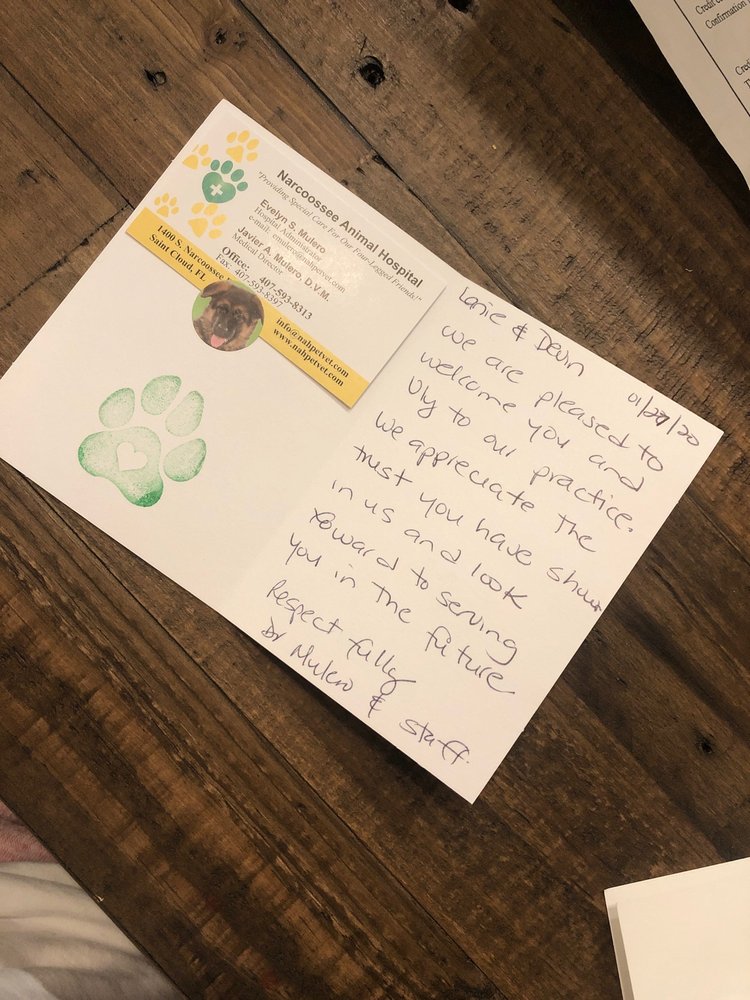 Narcoossee Animal Hospital
"Providing Special Care For Our Four-Legged Friends!"
Evelyn S. Mulero
Hospital Administrator
e-mail: emulero@nahpetvet.com
Javier A. Mulero, D.V.M.
Medical Director
Office: 407-593-8313
Fax: 407-593-8397
1400 S. Narcoossee
Saint Cloud, FL
info@nahpetvet.com
www.nahpetvet.com
01/27/20
Lanie & Devin
we are pleased to
welcome you and
Uly to our practice.
We appreciate the
trust you have shown
in us and look
foward to serving
you in the future
Respectfully
Dr Mulero & staff.
Credit
Confirmation